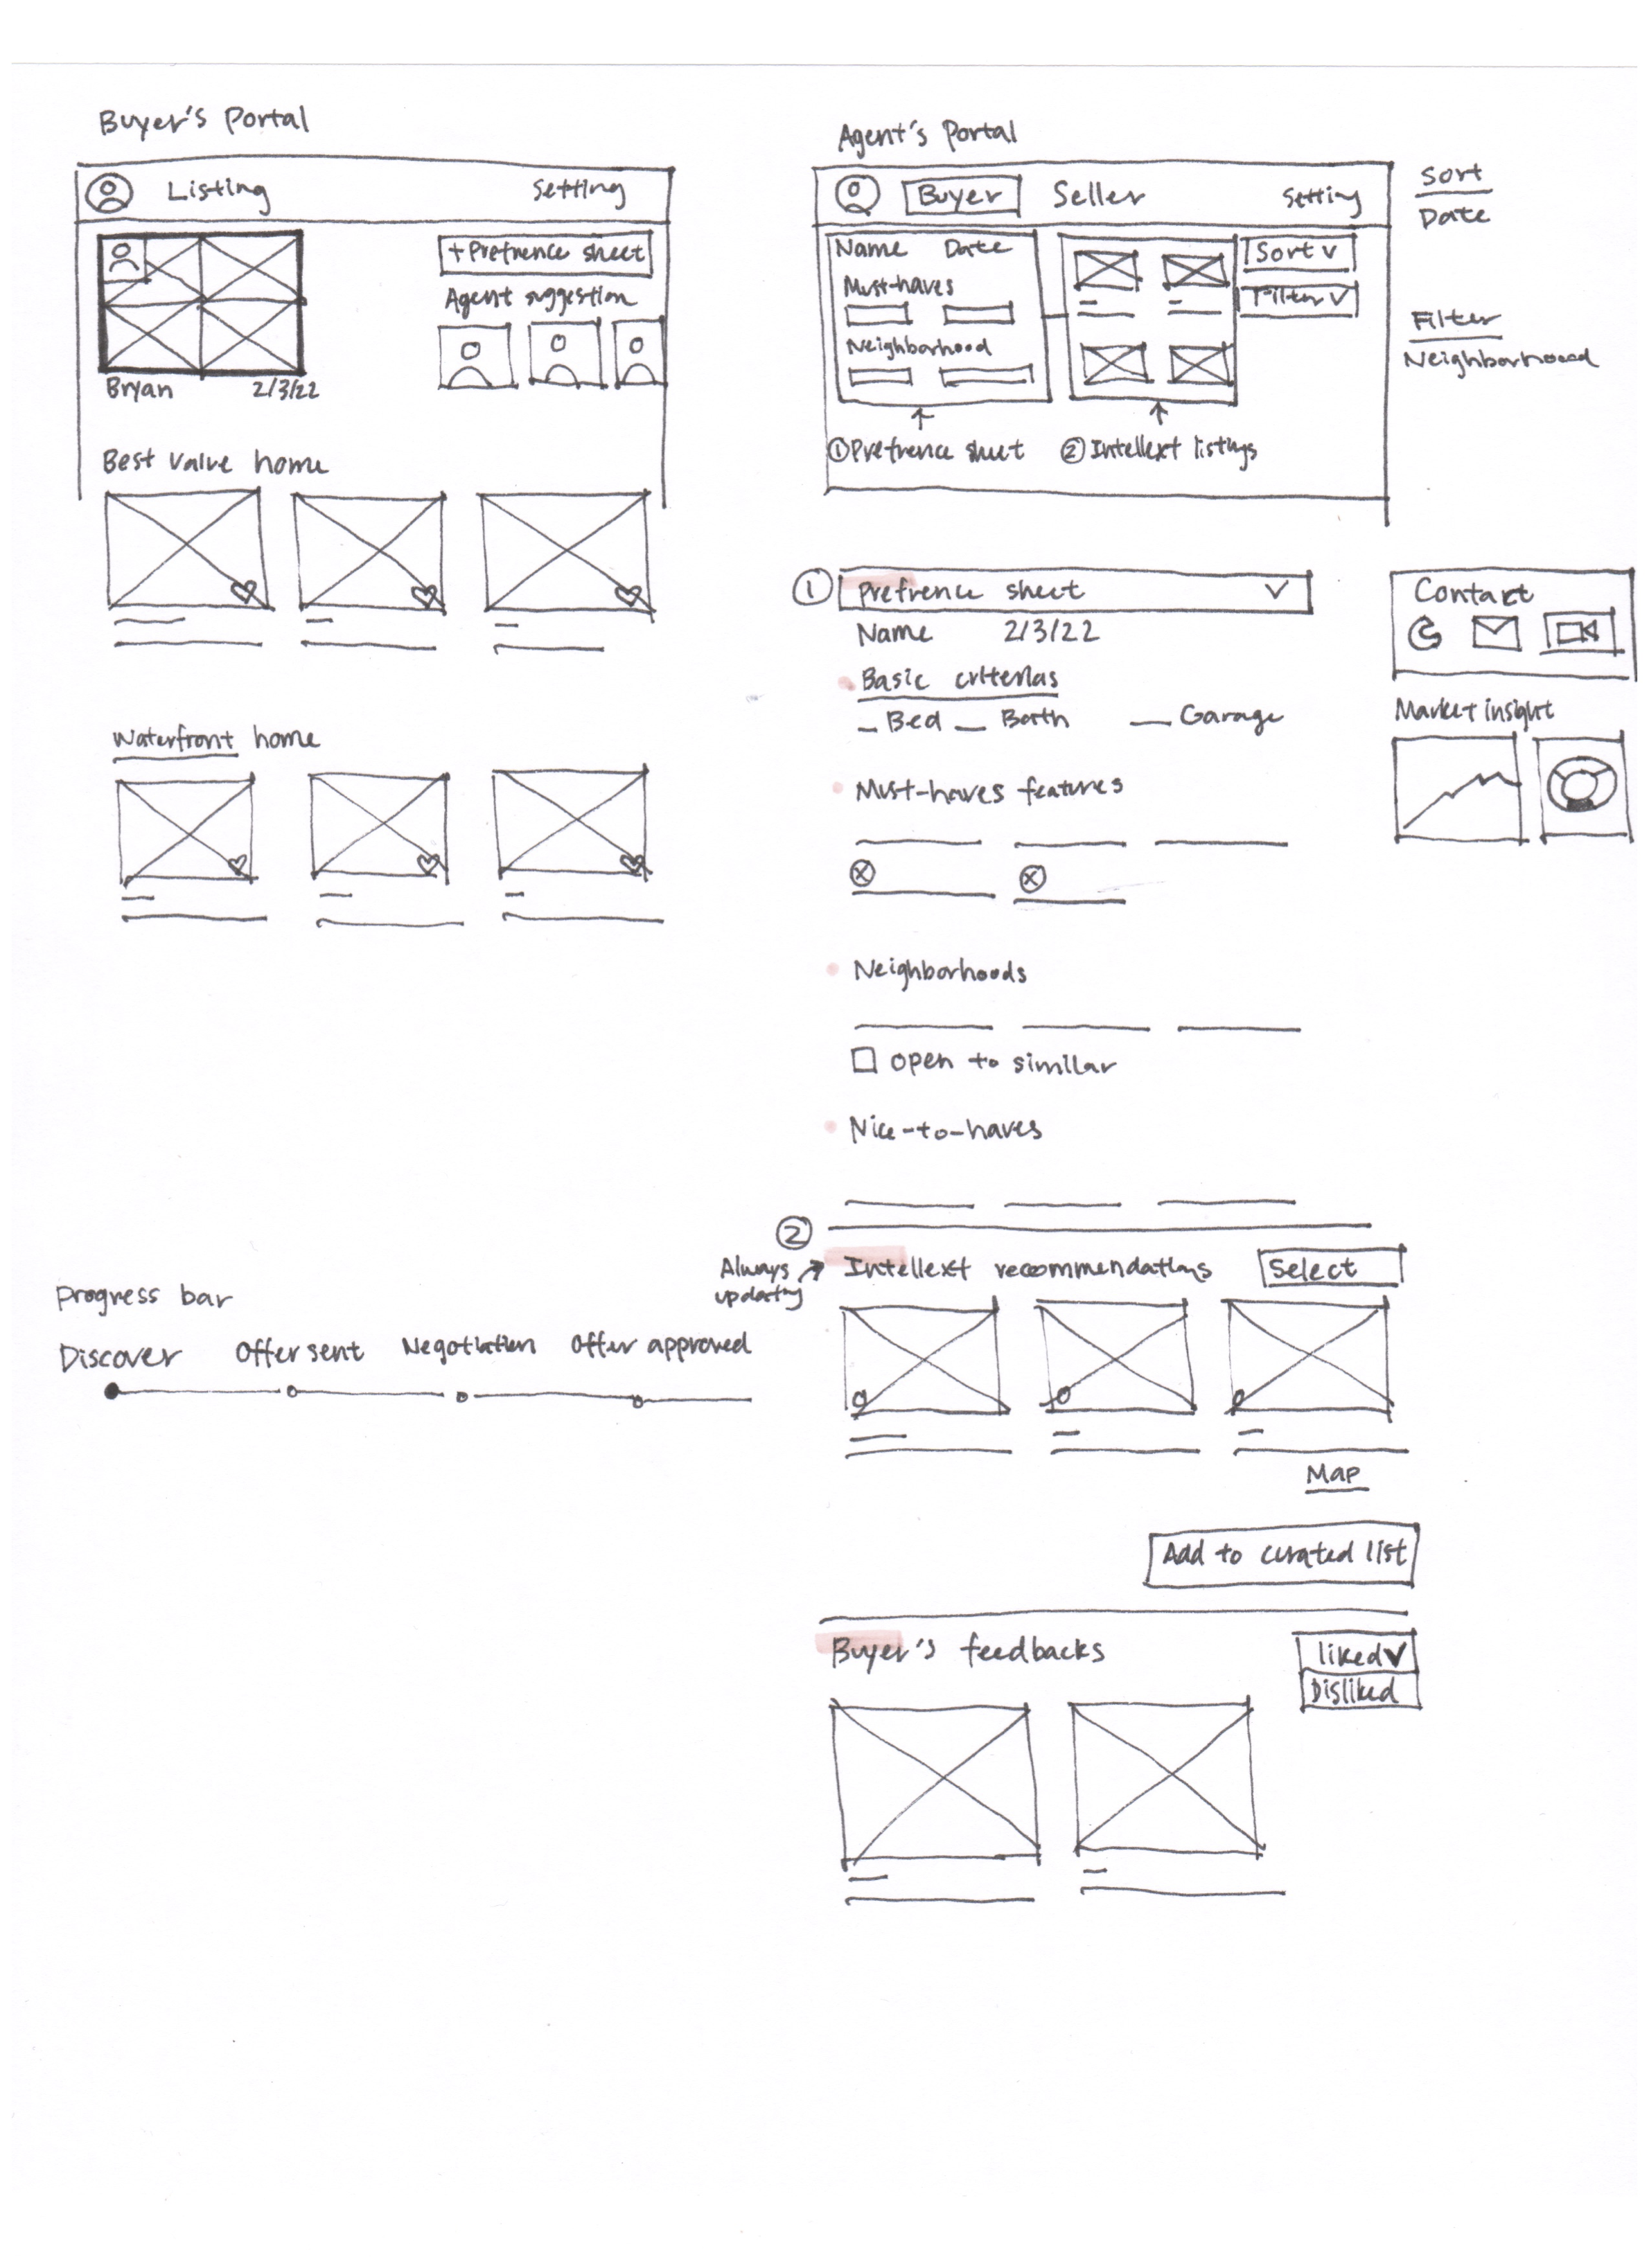 Buyer's Portal
Listing Setting
+ Prefrence sheet
Agent suggestion
Bryan 2/3/22
Best value home
Waterfront home
Progress bar
Discover Offer sent Negotiation Offer approved
Agent's Portal
Buyer Seller Setting
Name Date
Must-haves
Neighborhood
Sort
Filter
① Prefrence sheet ② Intellext listings
Sort
Date
Filter
Neighborhoood
① Prefrence sheet
Name 2/3/22
Basic criterias
Bed Bath Garage
Must-haves features
Neighborhoods
open to similar
Nice-to-haves
Contact
Market insight
②
Always
updating
Intellext recommendations Select
Map
Add to curated list
Buyer's feedbacks
liked
Disliked